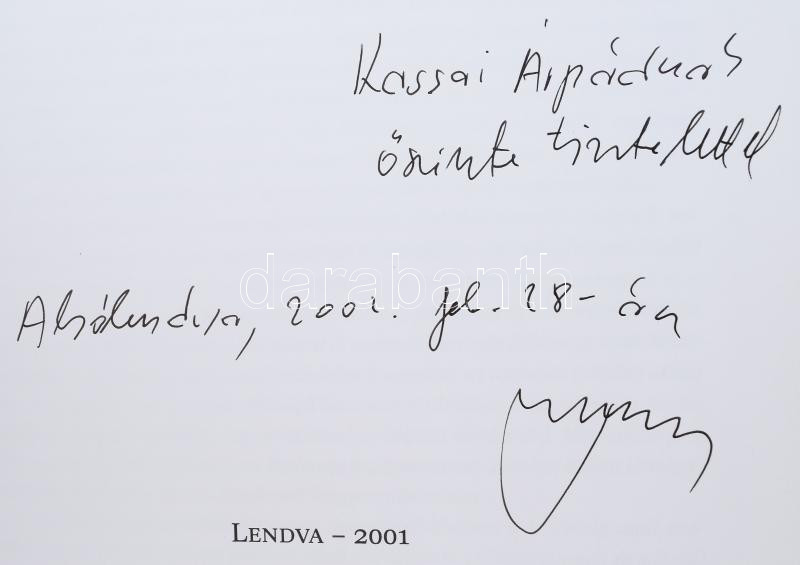 Kassai Árpádnak
őszinte tisztelettel
darabanth
Alsólendva, 2002. feb. 28-án
LENDVA – 2001